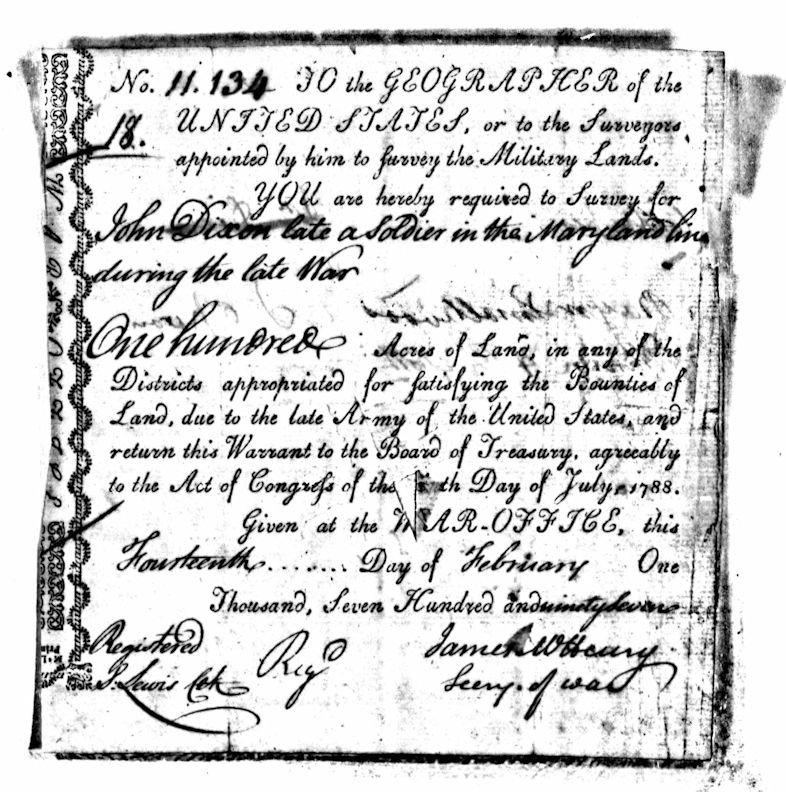 No. 11.134 TO the GEOGRAPHER of the
18. UNITED STATES, or to the Surveyors
appointed by him to survey the Military Lands.
YOU are hereby required to Survey for
John Dixon late a Soldier in the Maryland line
during the late War
One hundred Acres of Land, in any of the
Districts appropriated for satisfying the Bounties of
Land, due to the late Army of the United States, and
return this Warrant to the Board of Treasury, agreeably
to the Act of Congress of the th Day of July, 1788.
Given at the WAR-OFFICE, this
Fourteenth ........ Day of February One
Thousand, Seven Hundred and ninety seven
Registered Regd James McHenry
J. Lewis Clk Secry. of war